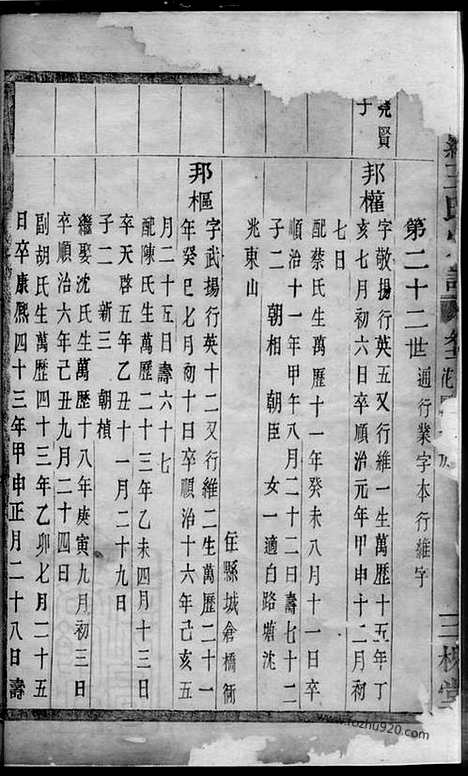 第二十二世 通行業字本行維字
堯賢子
邦權 字敬揚行英五又行維一生萬歷十五年丁
亥七月初六日卒順治元年甲申十二月初
七日
配蔡氏生萬歷十一年癸未八月十一日卒
順治十一年甲午八月二十二日壽七十二
子二 朝相 朝臣 女一適白路塘沈
兆東山
在縣城倉橋衖
邦樞 字武揚行英十二又行維二生萬歷二十一
年癸巳七月初十日卒順治十六年己亥五
月二十五日壽六十七
配陳氏生萬歷二十三年乙未四月十三日
卒天啓五年乙丑十一月二十九日
子二 新三 朝楨
繼娶沈氏生萬歷十八年庚寅九月初三日
卒順治六年己丑九月二十四日
副胡氏生萬歷四十三年乙卯七月二十五
日卒康熙四十三年甲申正月二十八日壽
www.fozhu920.com